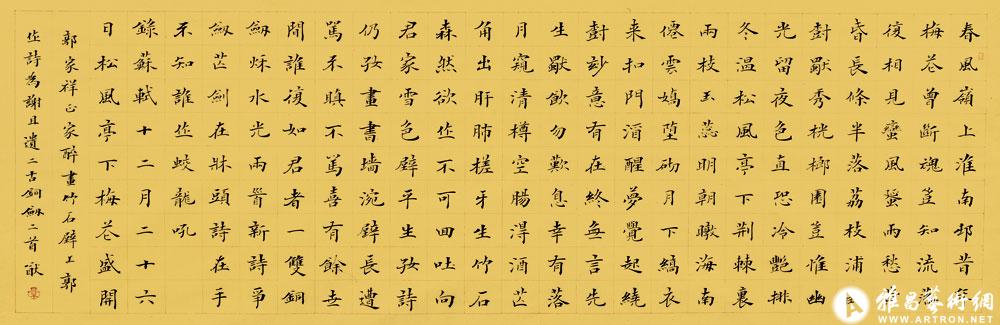 春風嶺上淮南邨昔年
梅花曾斷魂豈知流落
復相見蠻風蜑雨愁
昏長條半落荔枝浦
尌獨秀桄榔園豈惟幽
光留夜色直恐冷艷排
冬溫松風亭下荊棘裏
兩枝玉蕊明朝暾海南
僊雲嬌墮砌月下縞衣
来扣門酒醒夢覺起繞
尌玅意有在終無言先
生獨飲勿歎息幸有落
月窺清樽空腸得酒芒
角出肝肺槎牙生竹石
森然欲作不可回吐向
君家雪色壁平生好詩
仍好畫書墻涴壁長遭
罵不瞋不罵喜有餘世
間誰復如君者一雙銅
劍秋水光兩首新詩爭
劍芒劍在牀頭詩在手
不知誰作蛟龍吼
錄蘇軾十二月二十六
日松風亭下梅花盛開
郭家祥正家醉畫竹石壁上郭
作詩為謝且遺二古銅劍二首 猷
雅昌藝術網
WWW.ARTRON.NET